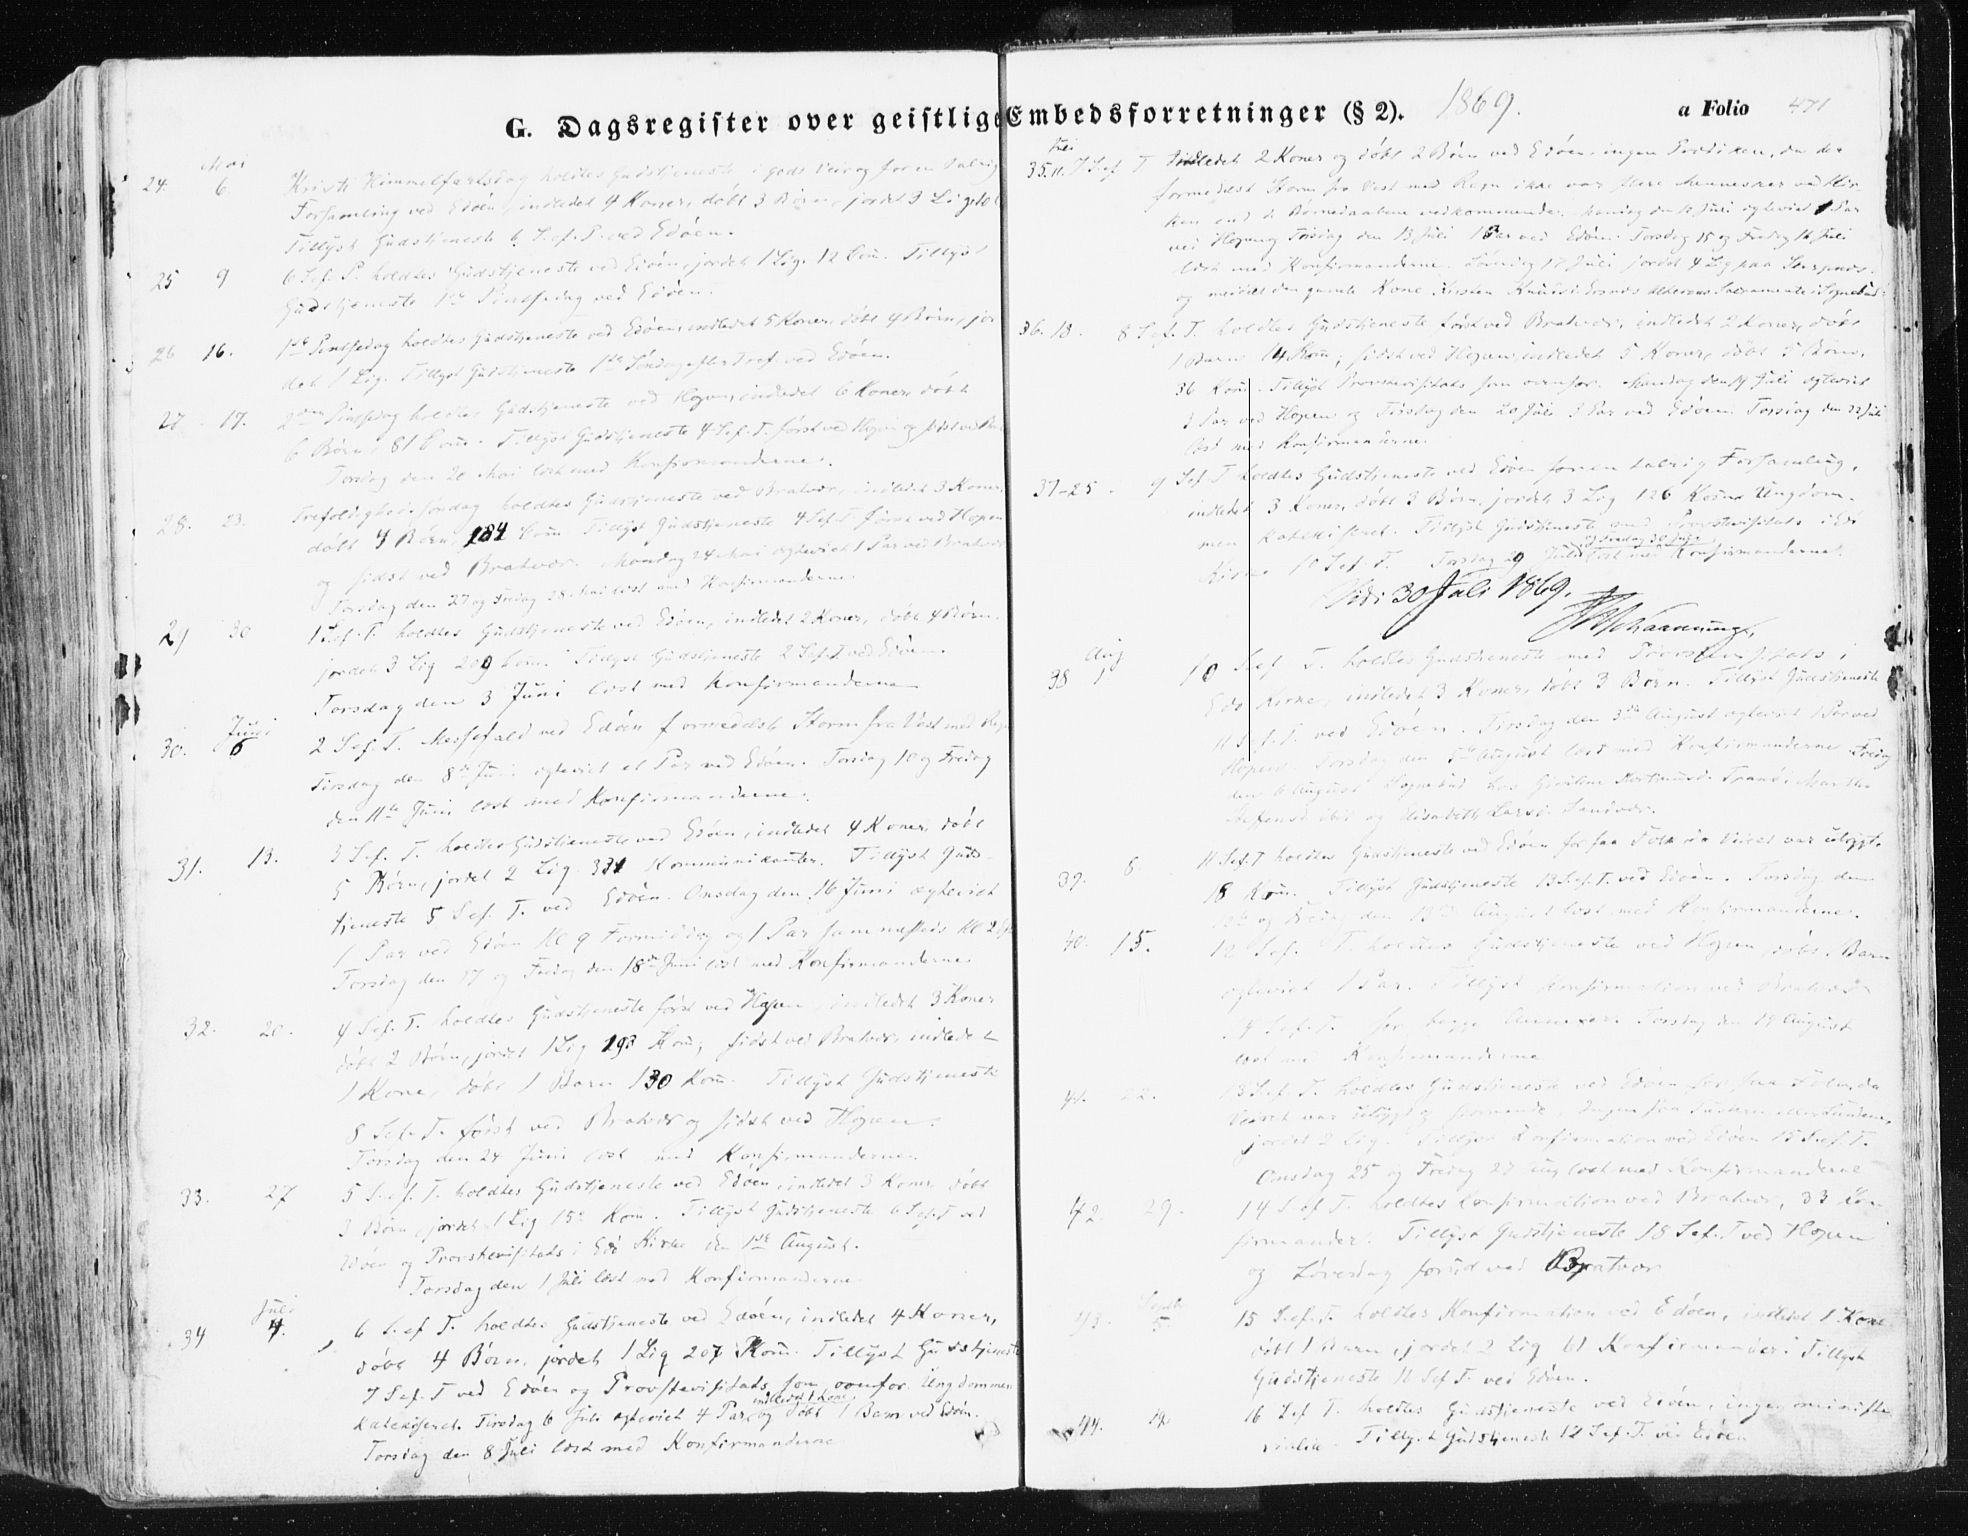 G. Dagsregister over geistlige Embedsforretninger (§ 2). 1869. a Folio 471
Mai
24. 6. Kristi Himmelfartsdag holdtes Gudstjeneste i godt Veir og for en talrig
Forsamling ved Edöen, indledet 4 Koner, döbt 3 Börn, jordet 3 Lig
Tillyst Gudstjeneste 6 S. ef. P. ved Edöen.
25 9 6 S. ef. P. holdtes Gudstjeneste ved Edöen, jordet 1 Lig. 12 Com. Tillyst
Gudstjeneste 1ste Pintsedag ved Edöen.
26 16. 1ste Pintsedag holdtes Gudstjeneste ved Edöen, indledet 5 Koner, döbt 4 Börn, jor-
det 1 Lig. Tillyst Gudstjeneste 1ste Söndag efter Tref. ved Edöen.
27 17. 2den Pintsedag holdtes Gudstjeneste ved Hopen, indledet 6 Koner, döbt
6 Börn, 81 Com. Tillyst Gudstjeneste 4 S. ef. T. först ved Hopen og sidst ved
Torsdag den 20 Mai læst med Konfirmanderne.
28. 23. Trefoldigheds söndag holdtes Gudstjeneste ved Bratvær, indledet 3 Koner,
döbt 4 Börn, 184 Com Tillyst Gudstjeneste 4 S. ef. T. först ved Hopen
og sidst ved Bratvær. Mandag 24 Mai ægteviet 1 Par ved Bratvær
Torsdag den 27 og Fredag 28 Mai læst med Konfirmanderne.
29 30 1 S. ef. T. holdtes Gudstjeneste ved Edöen, indledet 2 Koner, döbt 4 Börn,
jordet 3 Lig 209 Com. Tillyst Gudstjeneste 2 S. ef. T. ved Edöen.
Torsdag den 3 Juni læst med Konfirmanderne
Juni
30. 6 2 S. ef. T. Messefald ved Edöen formedelst Storm fra Vest med Regn
Tirsdag den 8de Juni ægteviet et Par ved Edöen. Torsdag 10 og Fredag
den 11te Juni læst med Konfirmanderne.
31. 13. 3 S. ef. T. holdtes Gudstjeneste ved Edöen, indledet 4 Koner, döbt
5 Börn, jordet 2 Lig 331 Kommunikanter. Tillyst Guds-
tjeneste 5 S. ef. T. ved Edöen. Onsdag den 16 Juni ægteviet
1 Par ved Edöen Kl 9 Formiddag og 1 Par sammesteds Kl 2
Torsdag den 17 og Fredag den 18de Juni læst med Konfirmanderne
32. 20. 4 S. ef. T. holdtes Gudstjeneste först ved Hopen, indledet 3 Koner
döbt 2 Börn, jordet 1 Lig 193 Kom; sidst ved Bratvær, indledet
1 Kone, döbt 1 Barn 130 Kom. Tillyst Gudstjeneste
8 S. ef. T. först ved Bratvær og sidst ved Hopen.
Torsdag den 24 Juni læst med Konfirmanderne.
33. 27 5 S. ef. T. holdtes Gudstjeneste ved Edöen, indledet 3 Koner, döbt
3 Börn, jordet 1 Lig 15 Kom. Tillyst Gudstjeneste 6 S. ef. T. ved
Edöen og Provstevisitats i Edö Kirke den 1ste August.
Torsdag den 1 Juli læst med Konfirmanderne
Juli
34 4. 6 S. ef. T. holdtes Gudstjeneste ved Edöen, indledet 4 Koner,
döbt 4 Börn, jordet 1 Lig 207 Kom. Tillyst Gudstjeneste
7 S. ef. T ved Edöen og Provstevisitats som ovenfor. Ungdommen
katekiseret. Tirsdag 6 Juli ægteviet 4 Par, indledet 1 Kone og döbt 1 Barn ved Edöen.
Torsdag den 8 Juli læst med Konfirmanderne
Juli
35. 11. 7 S. ef. T indledet 2 Koner og döbt 2 Börn ved Edöen, ingen Prædiken, da der
formedelst Storm fra Vest med Regn ikke var flere Mennesker ved Kir-
ken end de Börnedaabene vedkommende. Mandag den 12 Juli ægteviet 1 Par
ved Hopen, Tirsdag den 13 Juli 1 Par ved Edöen. Torsdag 15 og Fredag 16 Juli
læst med Konfirmanderne. Löverdag 17 Juli jordet 4 Lig paa
og meddelt den gamle Kone Kirsten Alterens Sacramente i Sognebud.
36. 18. 8 S. ef. T. holdtes Gudstjeneste först ved Bratvær, indledet 2 Koner, döbt
1 Barn 14 Kom; sidst ved Hopen, indledet 5 Koner, döbt 5 Börn,
36 Kom. Tillyst Provstevisitats som ovenfor. Mandag den 19 Juli ægteviet
3 Par ved Hopen og Tirsdag den 20 Juli 3 Par ved Edöen. Torsdag den 22 Juli
læst med Konfirmanderne.
37 - 25. 9 S. ef. T holdtes Gudstjeneste ved Edöen for en talrig Forsamling,
indledet 3 Koner, döbt 3 Börn, jordet 3 Lig 126 Kom Ungdom-
men katekiseret. Tillyst Gudstjeneste med Provstevisitats i Edö
Kirke 10 S. ef. T. Torsdag 29 Juli og Fredag 30 Juli læst med Konfirmanderne.
Vidi 30 Juli 1869.
Aug
38 1 10 S. ef. T. holdtes Gudstjeneste med Provstevisitats i
Edö Kirke, indledet 3 Koner, döbt 3 Börn. Tillyst Gudstjeneste
11 S. ef. T. ved Edöen. Tirsdag den 3die August ægteviet 1 Par ved
Hopen. Torsdag den 5te August læst med Konfirmanderne Fredag
den 6 August Sognebud hos
og Elisabeth Larsd. Sandvær.
39. 8. 11 S. ef. T holdtes Gudstjeneste ved Edöen for faa Folk da Veiret var utrygt.
18 Kom. Tillyst Gudstjeneste 13 S. ef. T. ved Edöen. Torsdag den
12te og Fredag den 13de August læst med Konfirmanderne.
40. 15. 12 S. ef. T. holdtes Gudstjeneste ved Hopen, döbt 1 Barn
ægteviet 1 Par. Tillyst Konfirmation ved Bratvær
14 S. ef. T. for begge Annexer. Torsdag den 19 August
læst med Konfirmanderne
41. 22. 13 S. ef. T. holdtes Gudstjeneste ved Edöen for faa Folk, da
Veiret var utrygt og
jordet 2 Lig. Tillyst Konfirmation ved Edöen 15 S. ef. T.
Onsdag 25 og Fredag 27 Aug læst med Konfirmanderne
42. 29. 14 S. ef. T. holdtes Konfirmation ved Bratvær, 33 Kon-
firmander. Tillyst Gudstjeneste 18 S. ef. T ved Hopen
og Löverdag forud ved Bratvær
Septbr
43. 5 15 S. ef. T. holdtes Konfirmation ved Edöen, indledet 1 Kone
döbt 1 Barn, jordet 2 Lig 61 Konfirmander. Tillyst
Gudstjeneste S. ef. T. ved Edöen.
44. 12 16 S. ef. T. holdtes Gudstjeneste ved Edöen, ingen ministe-
rialia. Tillyst Gudstjeneste S. ef. T. ved Edöen